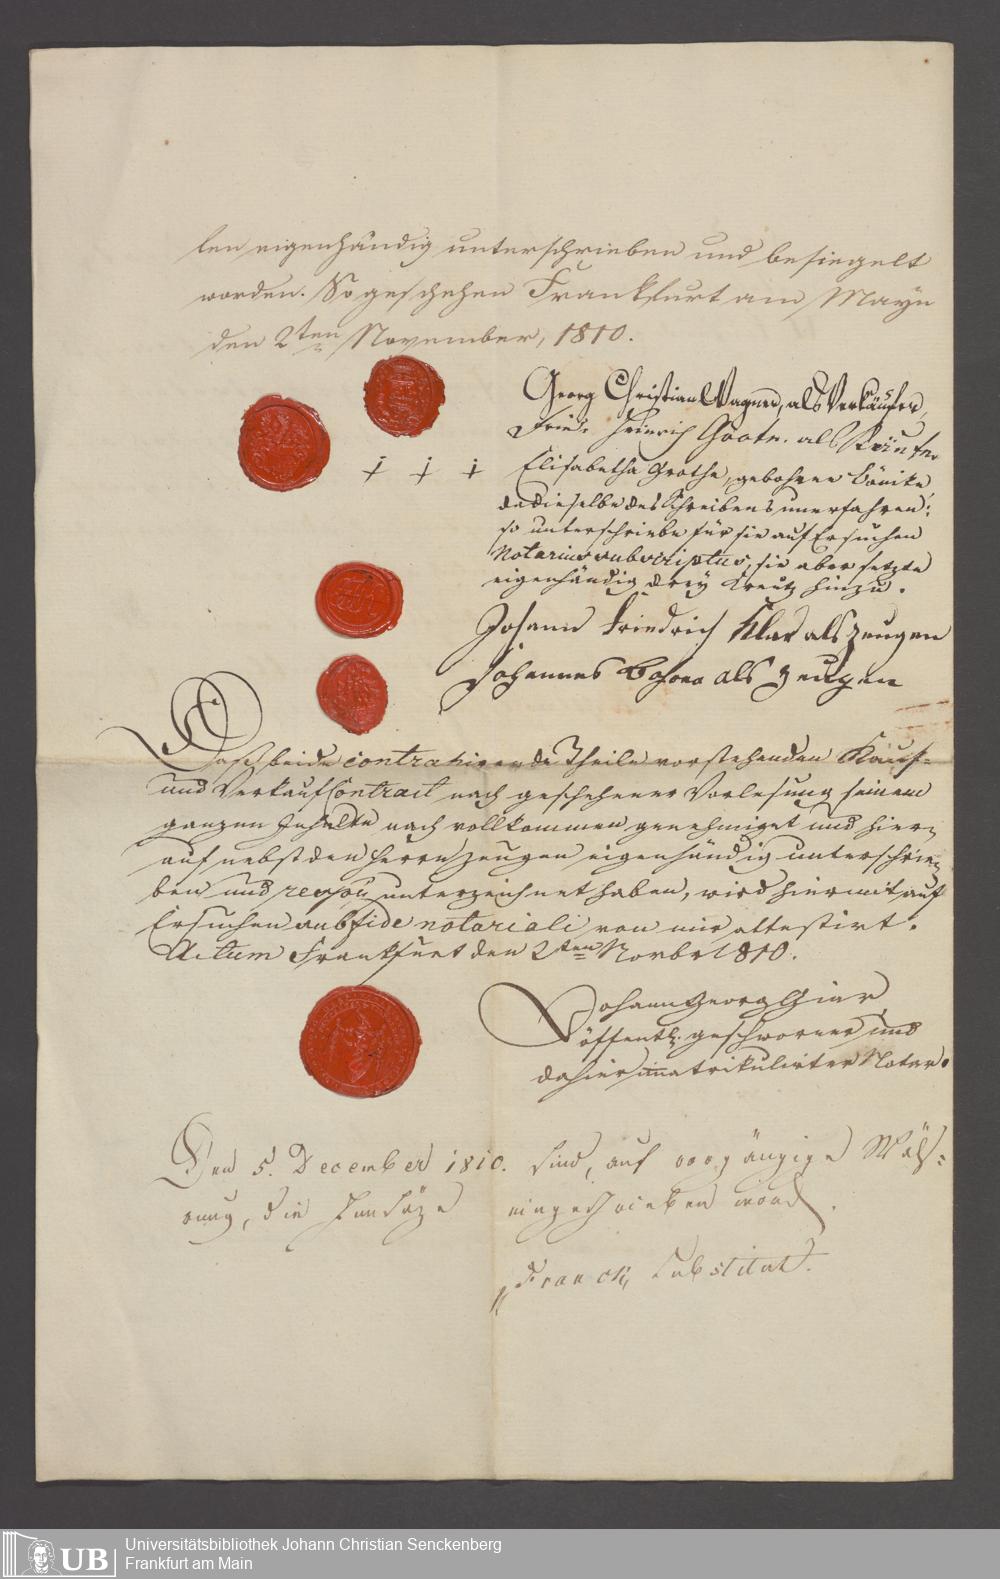 len eigenhändig unterschrieben und besiegelt
worden. So geschehen Frankfurt am Mayn
den 2ten November, 1810.
Georg Christian Wagner, als Verkäufer,
Fried. Heinrich Grote. als Käufer
Elisabetha Grothe, gebohrne Bönike,
da dieselbe des Schreibens unerfahren:
so unterschriebe für sie auf Ersuchen
Notarius subscriptus, sie aber setzte
eigenhändig drey Kreutz hinzu.
Johann Friedrich Klar als Zeugen
Johannes als Zeugen
Daß beide contrahirende Theile vorstehenden Kauf-
und Verkauf Contract nach geschehener Vorlesung seinem
ganzen Inhalte nach vollkommen genehmiget und hier-
auf nebst den Herrn Zeugen eigenhändig unterschrie-
ben und unterzeichnet haben, wird hiermit auf
Ersuchen sub fide notariali von mir attestirt.
Actum Frankfurt den 2ten Novbr 1810.
Johann Georg
öffentl. geschworner und
dahier immatrikulirter Notar.
Den 5. December 1810. sind, auf vorgängige Wäh-
rung, die Insäze eingeschrieben word.
Franck, Substitut.
Universitätsbibliothek Johann Christian Senckenberg
Frankfurt am Main
UB